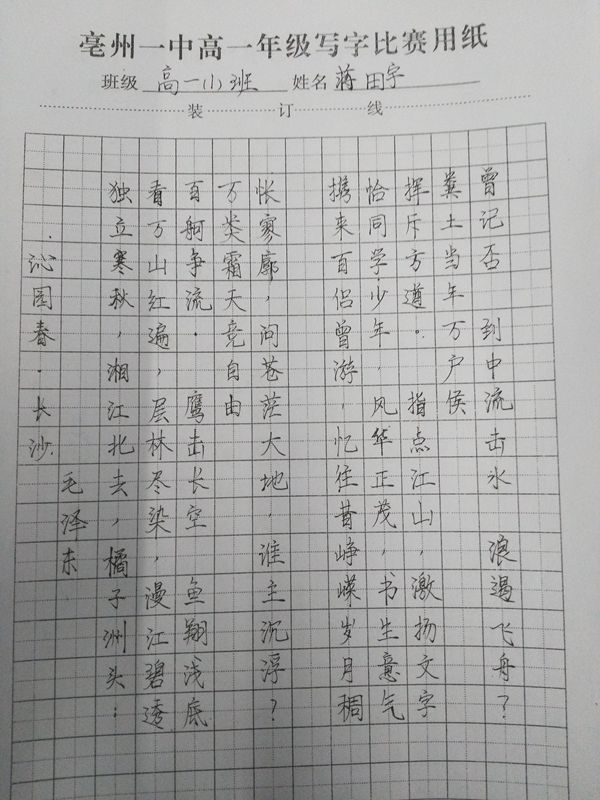 亳州一中高一年级写字比赛用纸
班级 高一(1)班 姓名 蒋田宇
装 订 线
沁园春·长沙
毛泽东
独立寒秋，湘江北去，橘子洲头：
看万山红遍，层林尽染，漫江碧透
百舸争流．鹰击长空 鱼翔浅底
万类霜天竞自由
怅寥廓，问苍茫大地，谁主沉浮？
携来百侣曾游，忆往昔峥嵘岁月稠
恰同学少年，风华正茂，书生意气
挥斥方遵。指点江山，激扬文字
粪土当年万户候
曾记否 到中流击水 浪遏飞舟？